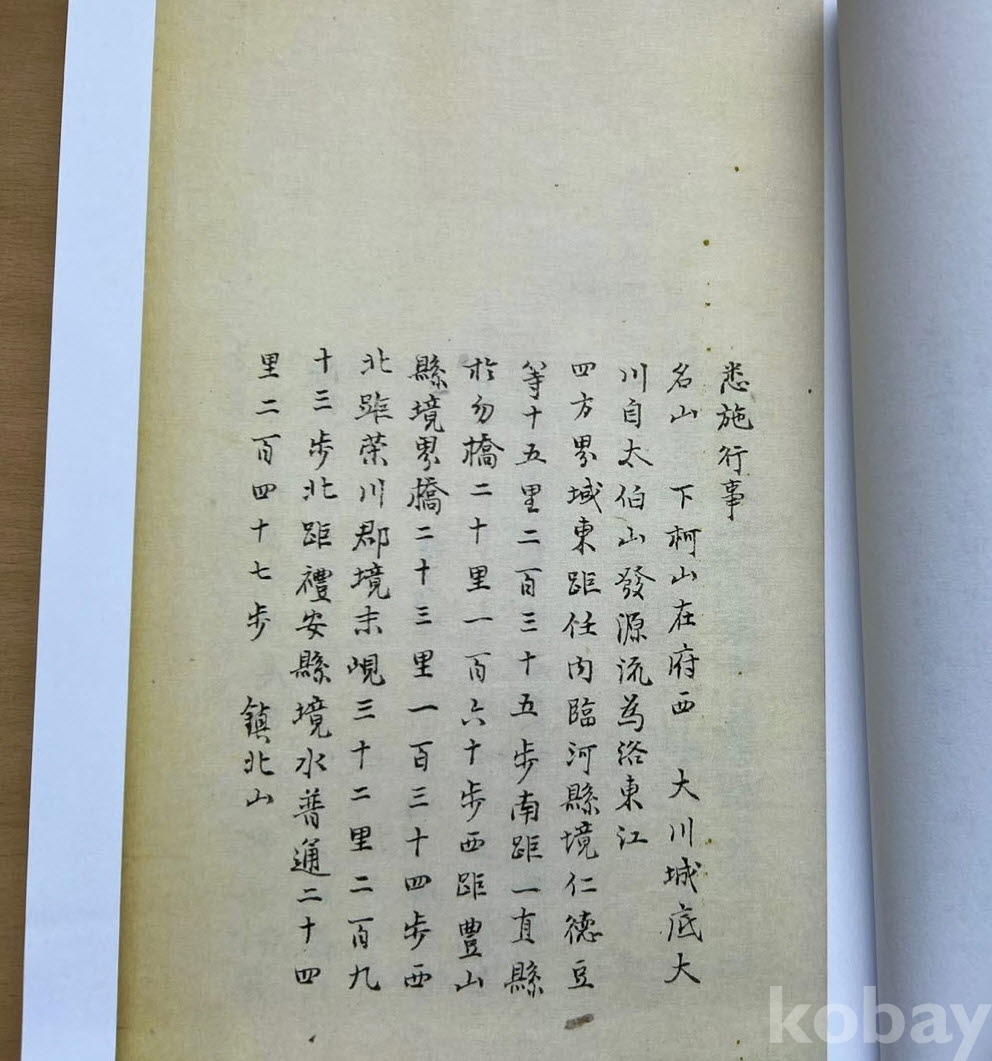 悉施行事
名山 下柯山在府西 大川城底大
川自太伯山發源流為洛東江
四方界域東距任内臨河縣境仁德豆
等十五里二百三十五步南距一直縣
於勿橋二十里一百六十步西距豊山
縣境界橋二十三里一百三十四步西
北距榮川郡境末峴三十二里二百九
十三步北距禮安縣境水普通二十四
里二百四十七步 鎮北山
kobay